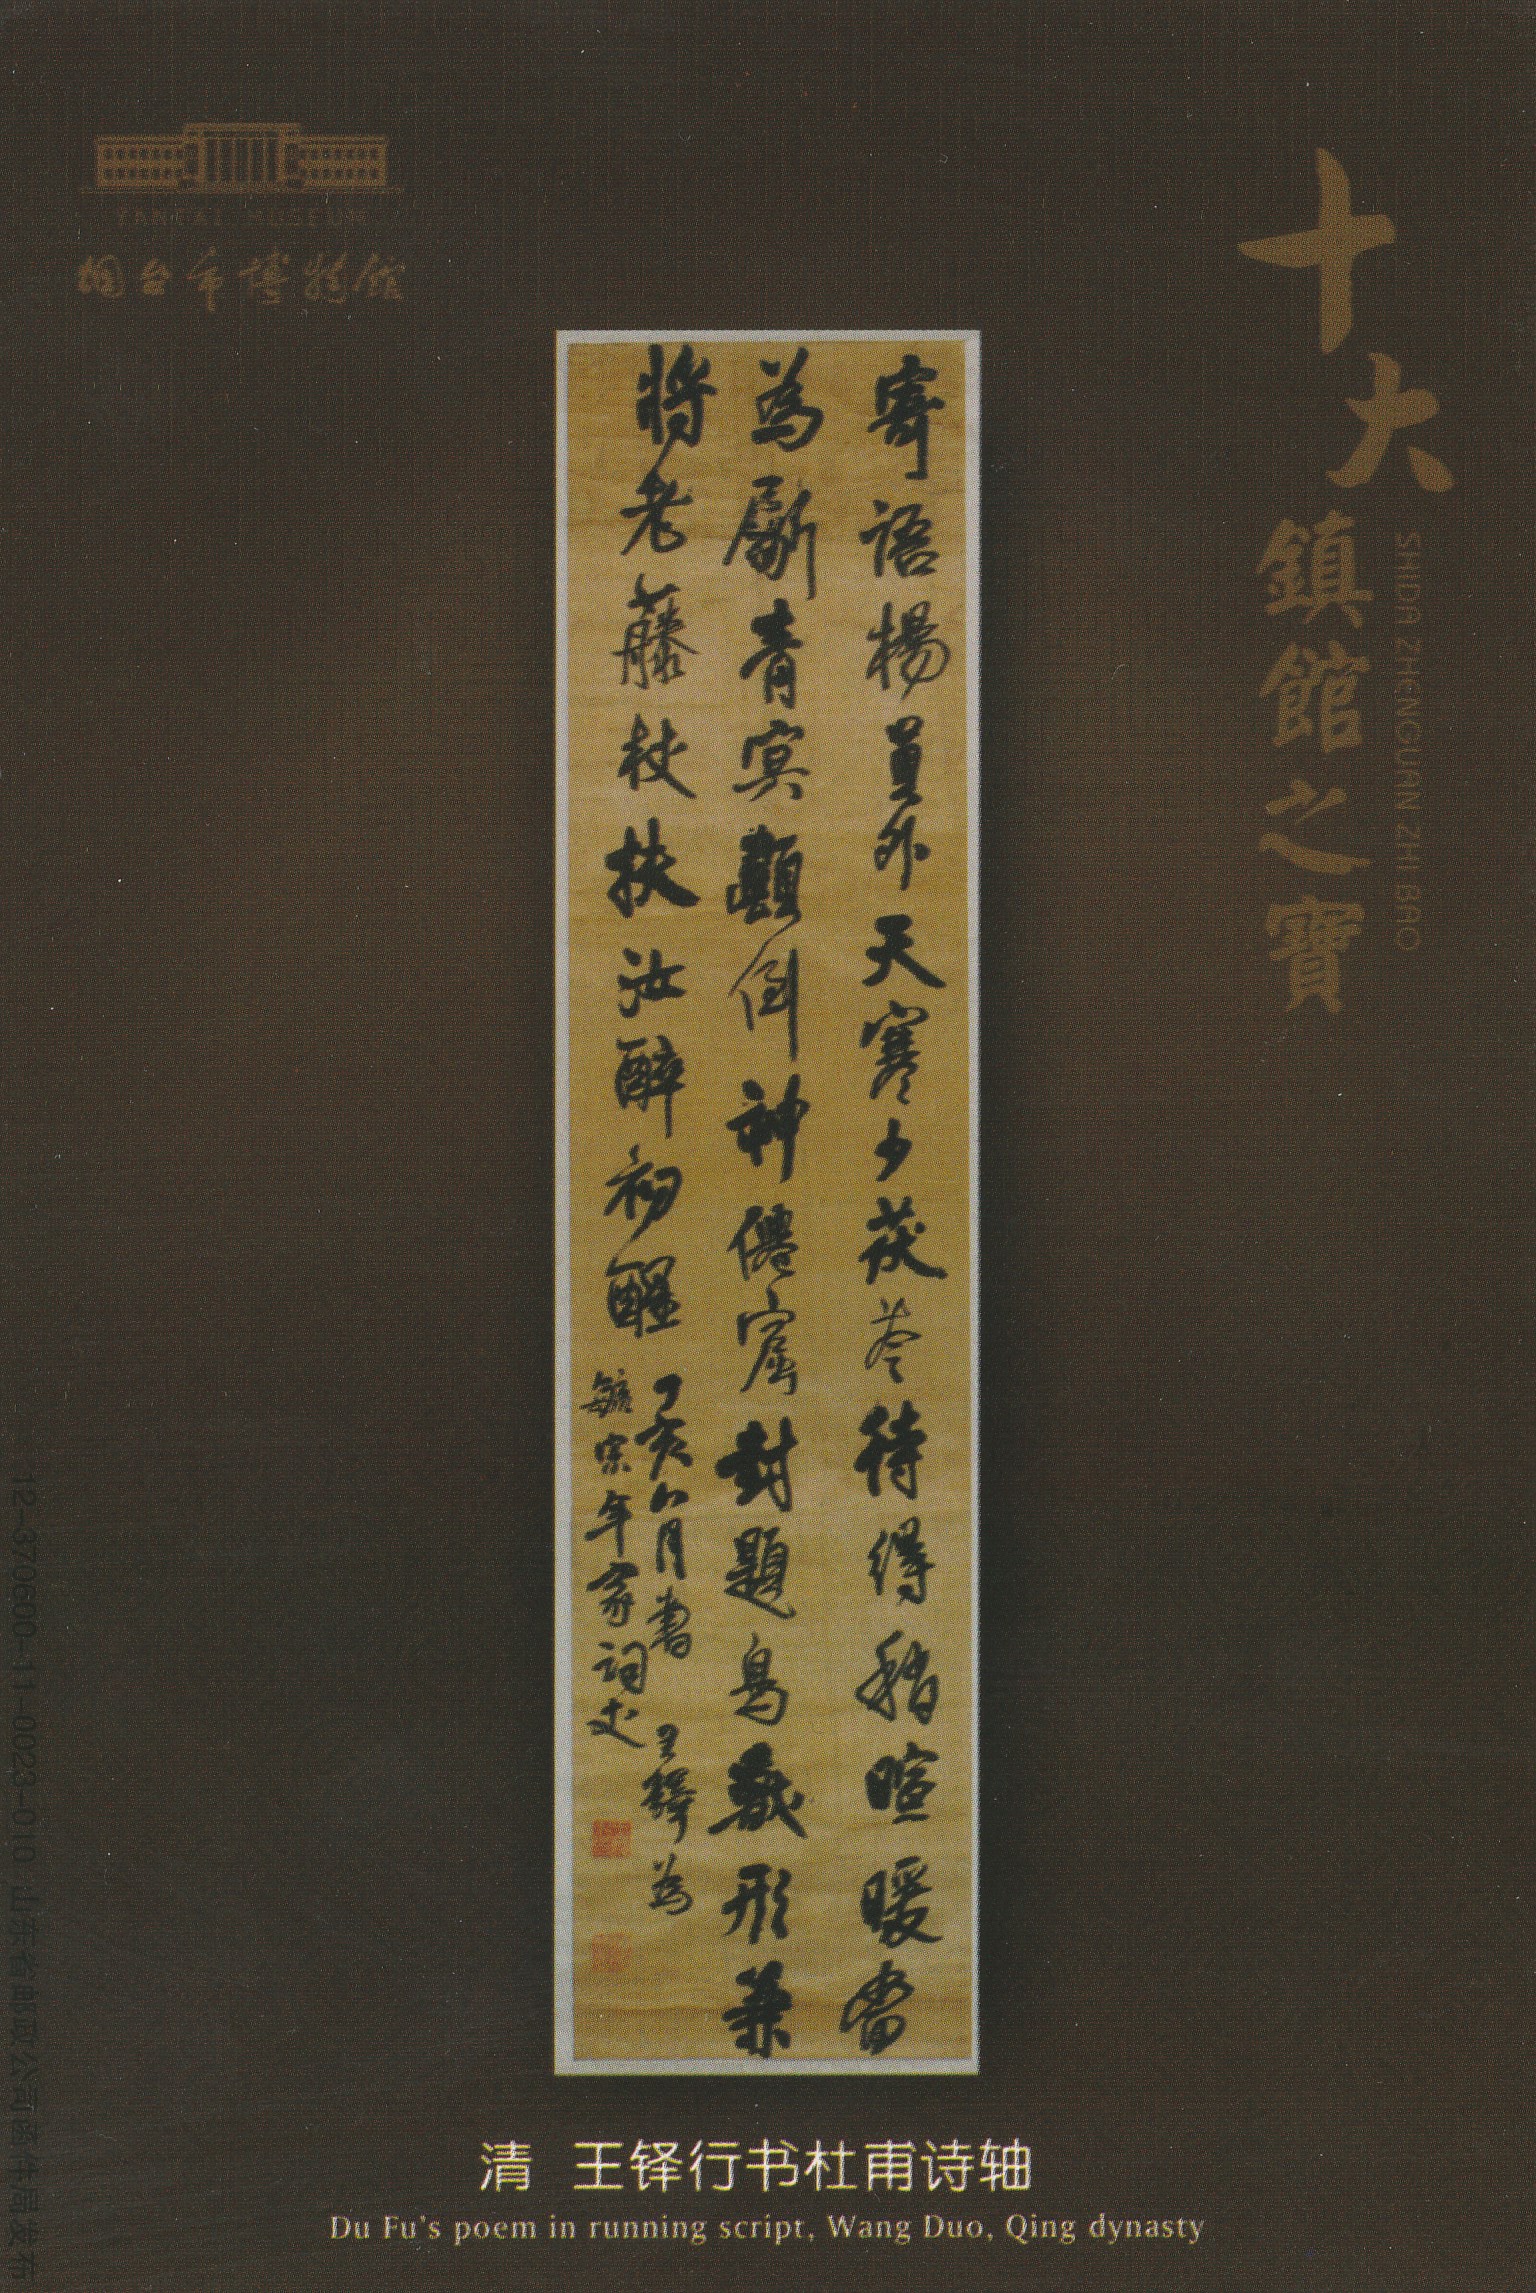 YANTAI MUSEUM
烟台市博物館
十大鎮館之寶
SHIDA ZHENGUAN ZHI BAO
寄語楊員外天寒少茯苓待得稍暄暖當
為斸青冥顛倒神僊窟封題鳥獸形兼
將老藤杖扶汝醉初醒
丁亥八月書 王鐸為
毓宗年家詞丈
清 王铎行书杜甫诗轴
Du Fu's poem in running script, Wang Duo, Qing dynasty
12-370600-11-0023-010 山东省邮政公司函件局发布